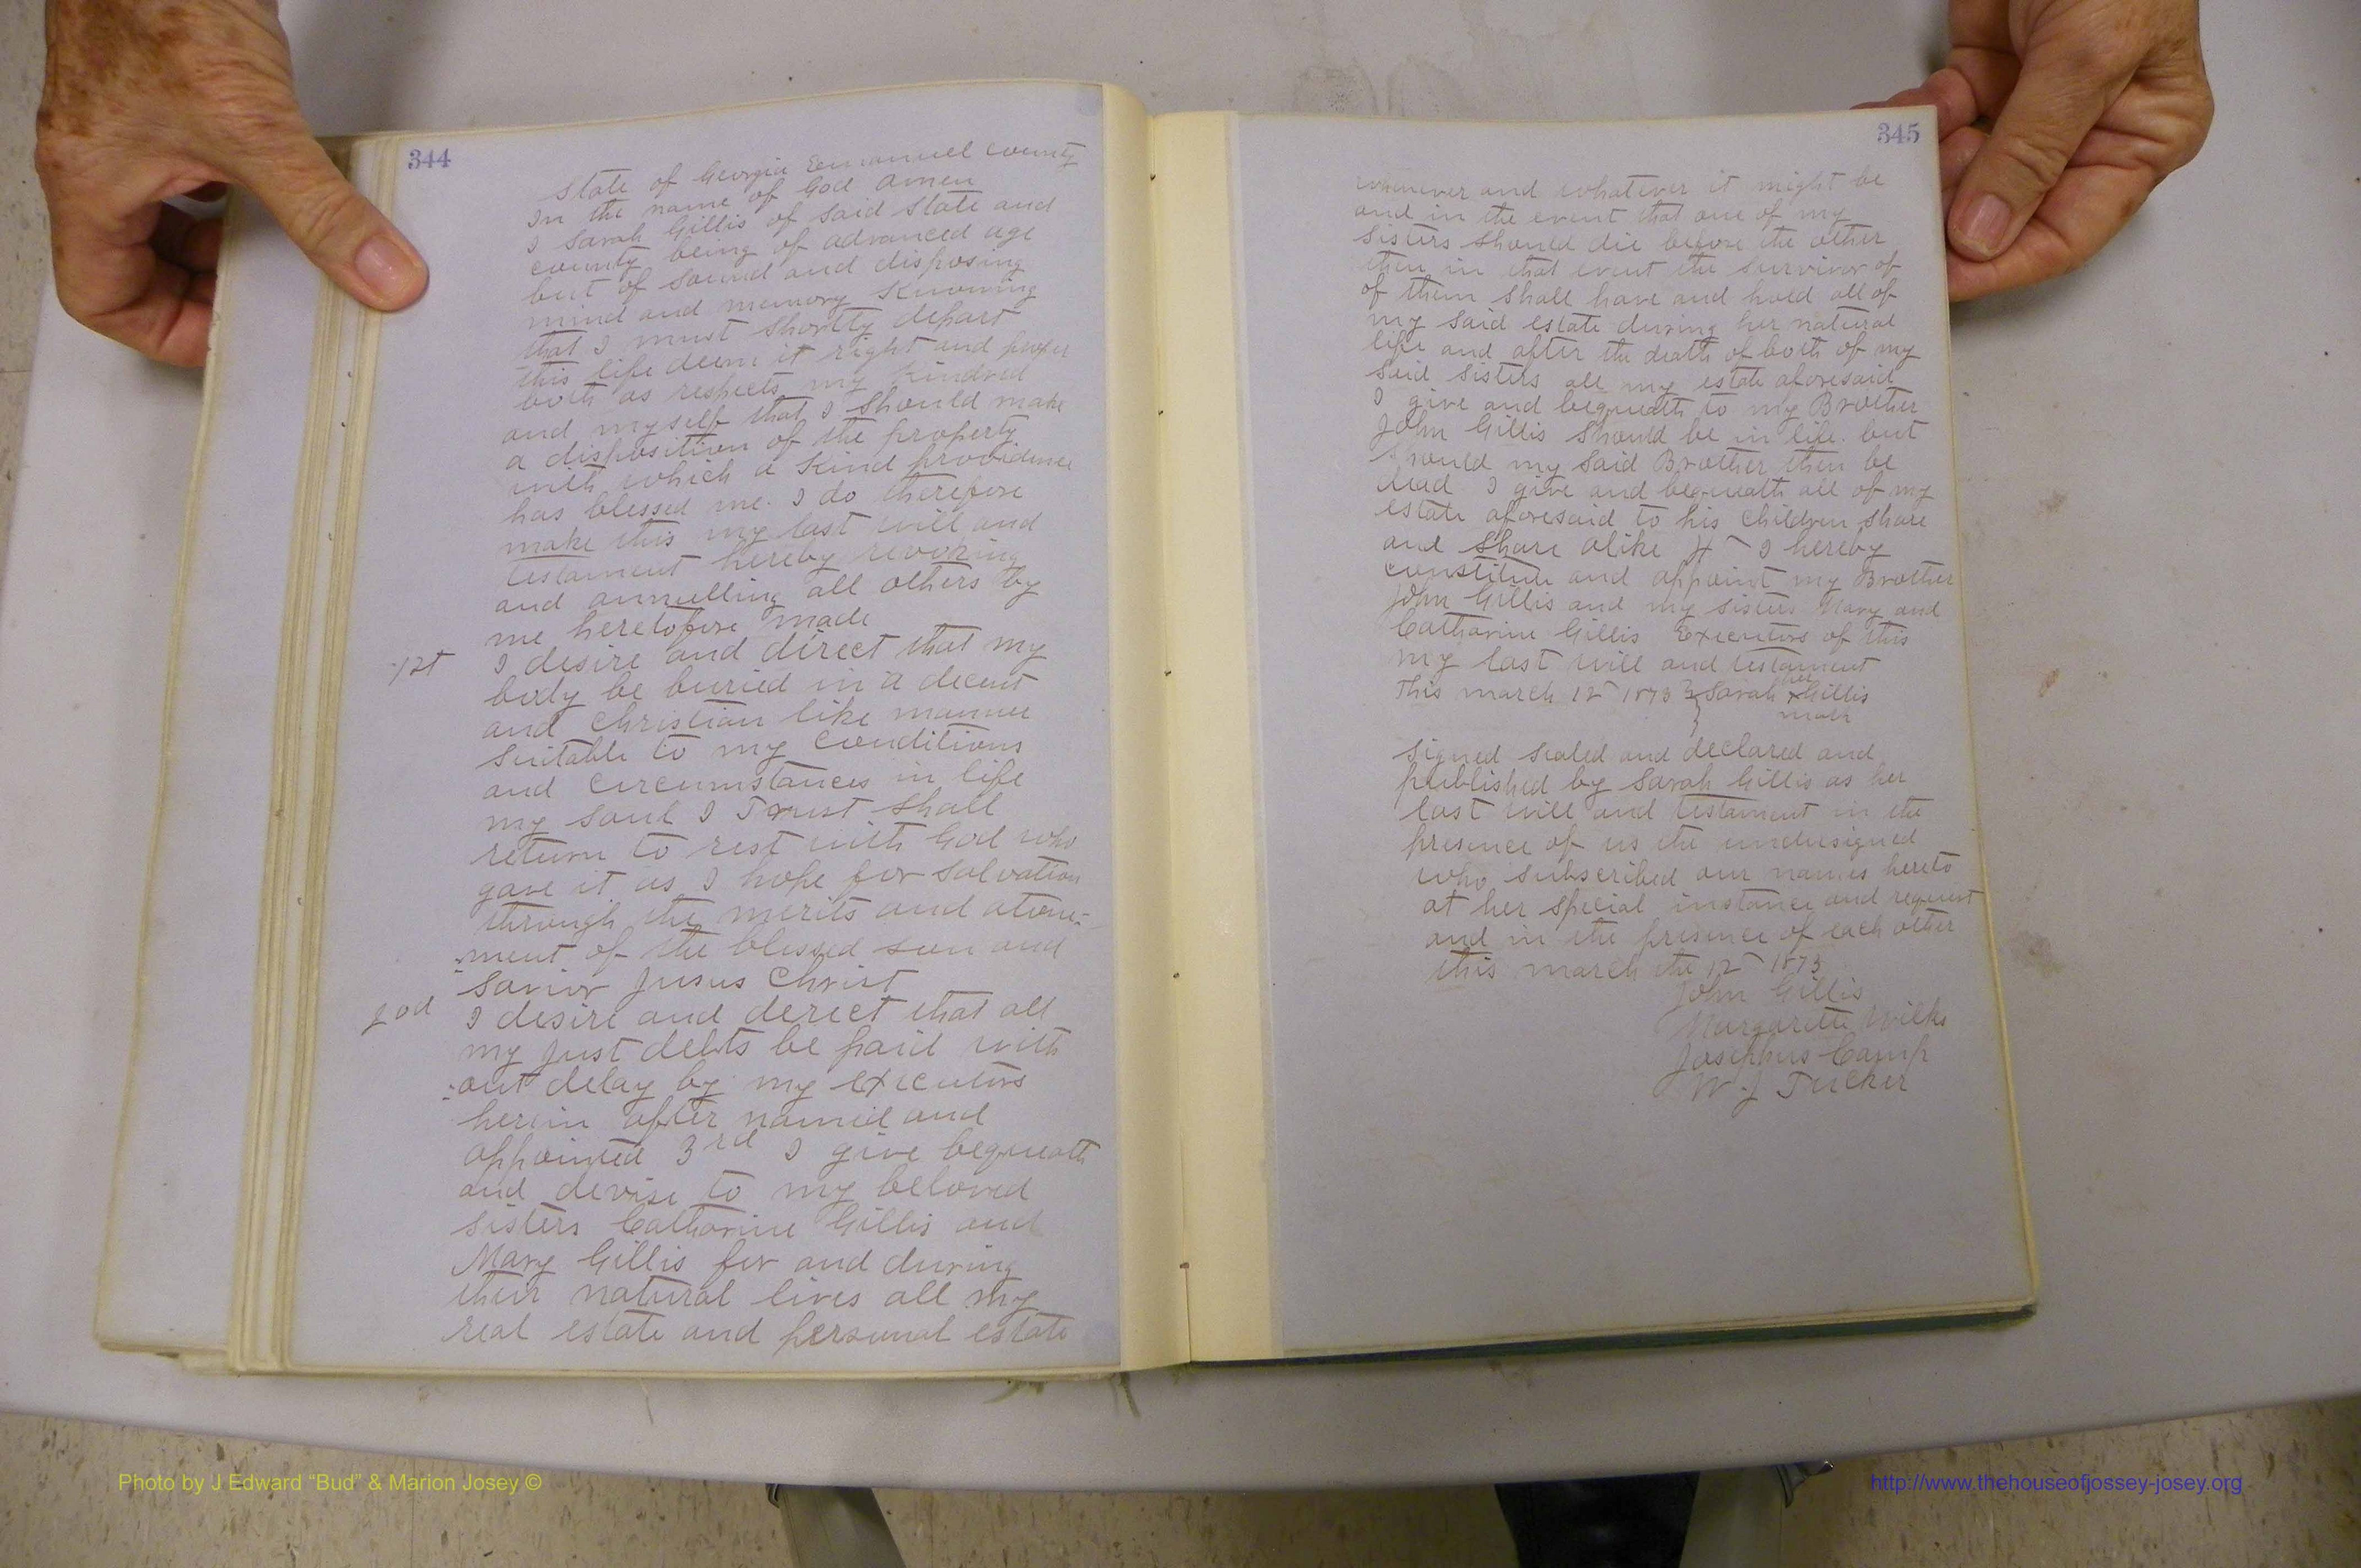 344
State of Georgia Emanuel County
In the name of God Amen
I Sarah Gillis of said State and
county being of advanced age
but of sound and disposing
mind and memory Knowing
that I must shortly depart
this life deem it right and proper
both as respects my Kindred
and myself that I should make
a disposition of the property
with which a Kind providence
has blessed me. I do therefore
make this my last will and
testament hereby revoking
and annulling all others by
me heretofore made
1st I desire and direct that my
body be buried in a decent
and Christian like manner
suitable to my conditions
and circumstances in life
my soul I Trust shall
return to rest with God who
gave it as I hope for salvation
through the merits and atone-
ment of the blessed son and
Savior Jesus Christ
2nd I desire and derect that all
my just debts be paid with
out delay by my executors
herein after named and
appointed 3rd I give bequeath
and devise to my beloved
sisters Catharine Gillis and
Mary Gillis for and during
their natural lives all my
real estate and personal estate
345
whenever and whatever it might be
and in the event that one of my
sisters should die before the other
then in that event the survivor of
of them shall have and hold all of
my said estate during her natural
life and after the death of both of my
said sisters all my estate aforesaid
I give and bequeath to my Brother
John Gillis should be in life. but
should my said Brother then be
dead I give and bequeath all of my
estate aforesaid to his children share
and share alike 4 I hereby
constitute and appoint my Brother
John Gillis and my sisters Mary and
Catharine Gillis Executors of this
my last will and testament
her
This march 12 1873 Sarah x Gillis
mark
Signed sealed and declared and
published by Sarah Gillis as her
last will and testament in the
presence of us the undersigned
who subscribed our names hereto
at her special instance and request
and in the presence of each other
this march the 12 1873
John Gillis
Margarette Wilks
Josephus Camp
W J Tucker
Photo by J Edward “Bud” & Marion Josey ©
http://www.thehouseofjossey-josey.org